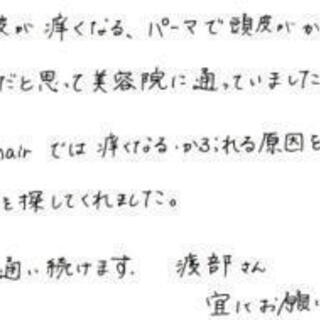 が痒くなる、パーマで頭皮がか
だと思って美容院に通っていました
hairでは痒くなる・かぶれる原因を
を探してくれました。
通い続けます. 渡部さん
宜にお願い